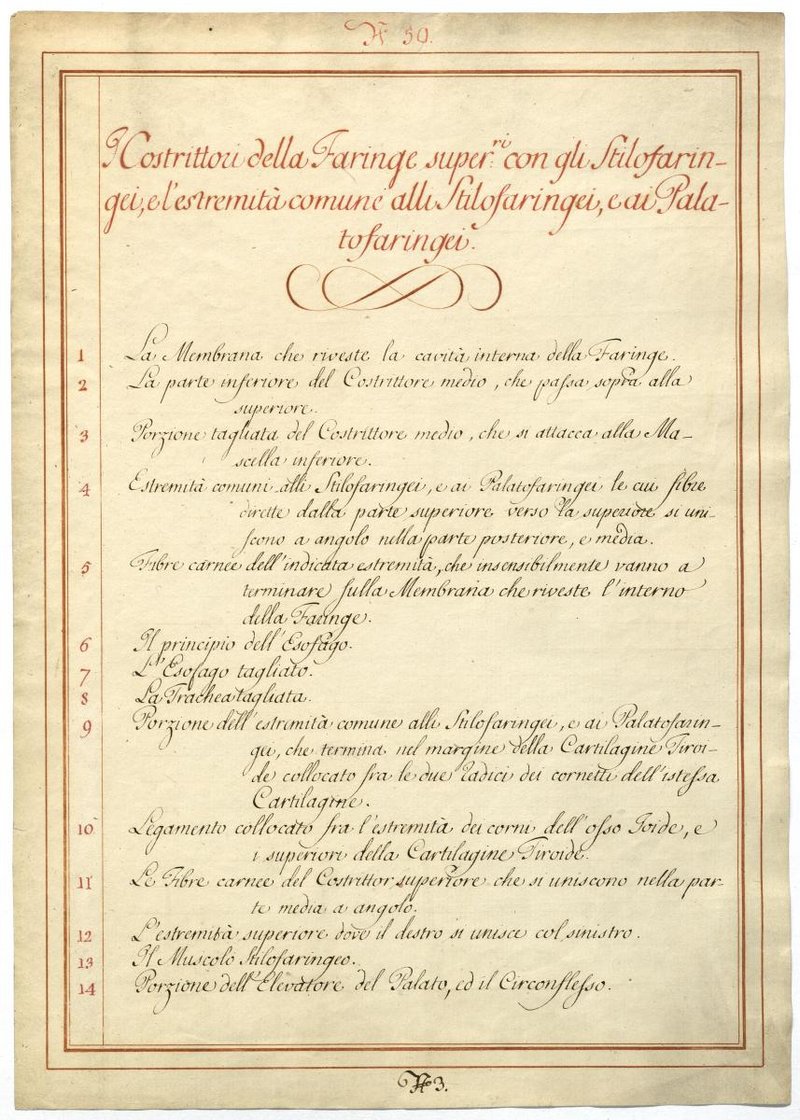 N 50.
I Costrittori della Faringe super.ri con gli Stilofarin-
gei, e l'estremità comune alli Stilofaringei, e ai Pala-
tofaringei.
1 La Membrana che riveste la cavità interna della Faringe.
2 La parte inferiore del Costrittore medio, che passa sopra alla
superiore.
3 Porzione tagliata del Costrittore medio, che si attacca alla Ma-
scella inferiore.
4 Estremità comuni alli Stilofaringei, e ai Palatofaringei le cui fibre
dirette dalla parte superiore verso la superiore si uni-
scono a angolo nella parte posteriore, e media.
5 Fibre carnee dell'indicata estremità, che insensibilmente vanno a
terminare sulla Membrana che riveste l'interno
della Faringe.
6 Il principio dell'Esofago.
7 L'Esofago tagliato.
8 La Trachea tagliata.
9 Porzione dell'estremità comune alli Stilofaringei, e ai Palatofarin-
gei, che termina nel margine della Cartilagine Tiroi-
de collocato fra le due radici dei cornetti dell'istessa
Cartilagine.
10 Legamento collocato fra l'estremità dei corni dell'osso Ioide, e
i superiori della Cartilagine Tiroide.
11 Le Fibre carnee del Costrittor superiore che si uniscono nella par-
te media a angolo.
12 L'estremità superiore dove il destro si unisce col sinistro.
13 Il Muscolo Stilofaringeo.
14 Porzione dell'Elevatore del Palato, ed il Circonflesso.
N 3.